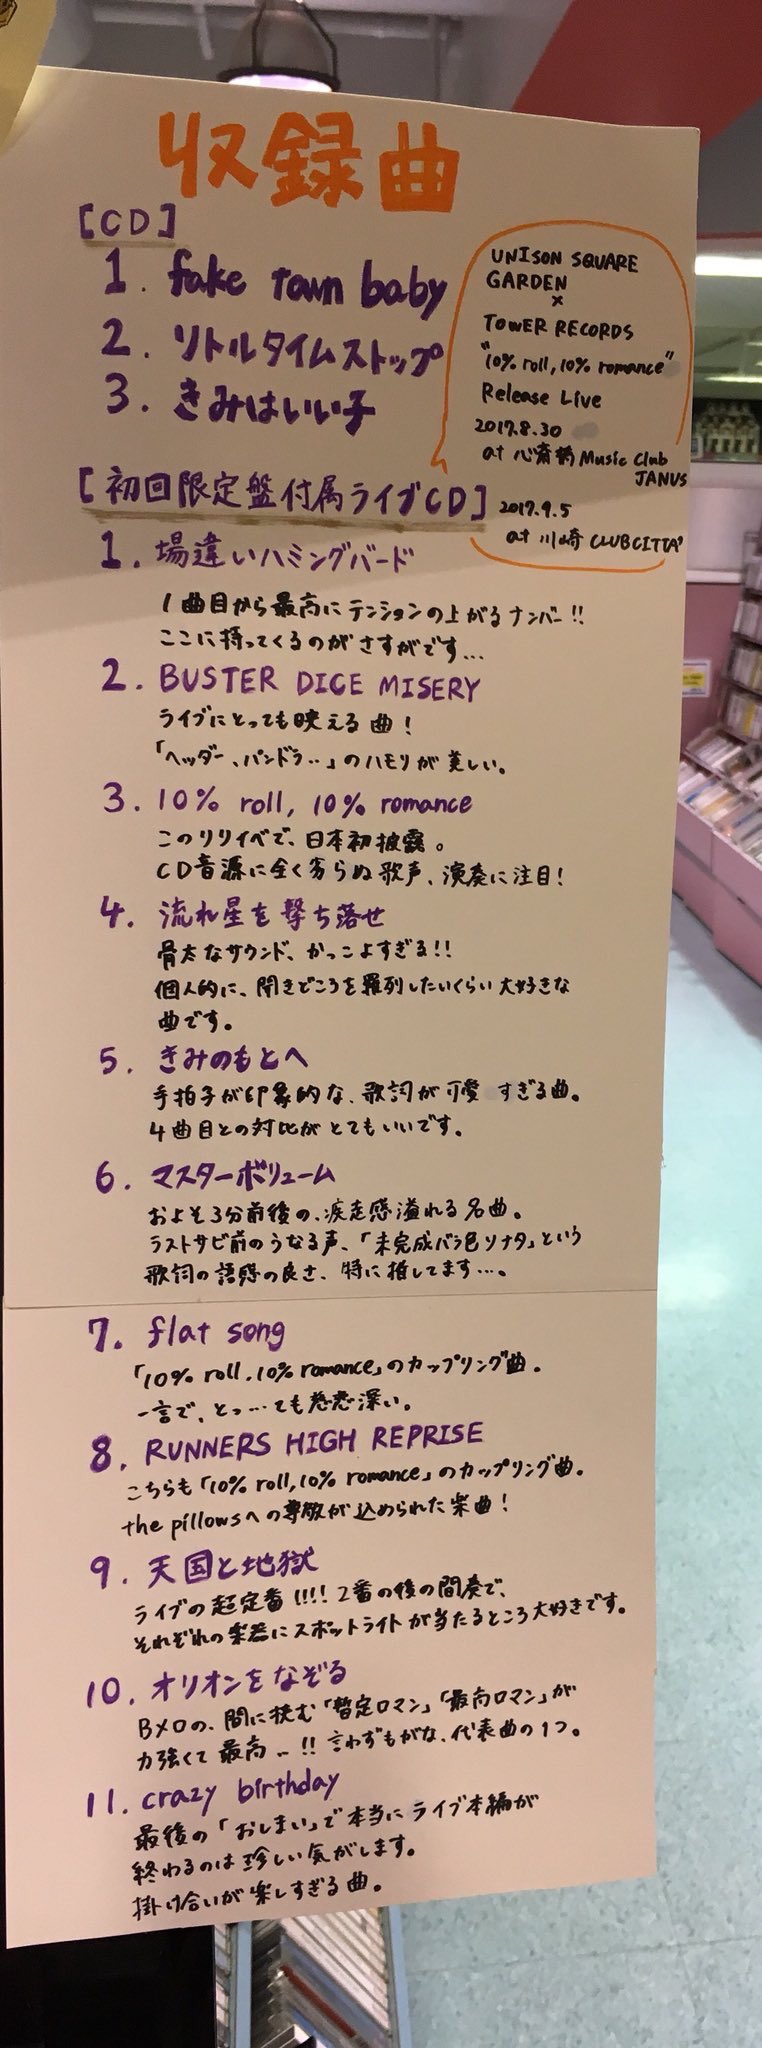 収録曲
[CD]
1. fake town baby
2. リトルタイムストップ
3. きみはいい子
UNISON SQUARE
GARDEN
×
TOWER RECORDS
"10% roll, 10% romance"
Release Live
2017.8.30
at 心斎橋 Music Club
JANUS
2017.9.5
at 川崎 CLUB CITTA'
[初回限定盤付属ライブCD]
1. 場違いハミングバード
1曲目から最高にテンションの上がるナンバー!!
ここに持ってくるのがさすがです…
2. BUSTER DICE MISERY
ライブにとっても映える曲!
「ヘッダー、パンドラ‥」のハモリが美しい。
3. 10% roll, 10% romance
このリリイベで、日本初披露。
CD音源に全く劣らぬ歌声、演奏に注目!
4. 流れ星を撃ち落せ
骨太なサウンド、かっこよすぎる!!
個人的に、聞きどころを羅列したいくらい大好きな
曲です。
5. きみのもとへ
手拍子が印象的な、歌詞が可愛すぎる曲。
4曲目との対比がとてもいいです。
6. マスターボリューム
およそ3分前後の、疾走感溢れる名曲。
ラストサビ前のうなる声、「未完成バラ色ソナタ」という
歌詞の語感の良さ、特に推してます…。
7. flat song
「10% roll, 10% romance」のカップリング曲。
一言で、とっ…ても慈悲深い。
8. RUNNERS HIGH REPRISE
こちらも「10% roll, 10% romance」のカップリング曲。
the pillowsへの尊敬が込められた楽曲!
9. 天国と地獄
ライブの超定番!!!! 2番の後の間奏で、
それぞれの楽器にスポットライトが当たるところ大好きです。
10. オリオンをなぞる
Bメロの、間に挟む「暫定ロマン」「最高ロマン」が
力強くて最高‥!! 言わずもがな、代表曲の1つ。
11. crazy birthday
最後の「おしまい」で本当にライブ本編が
終わるのは珍しい気がします。
掛け合いが楽しすぎる曲。